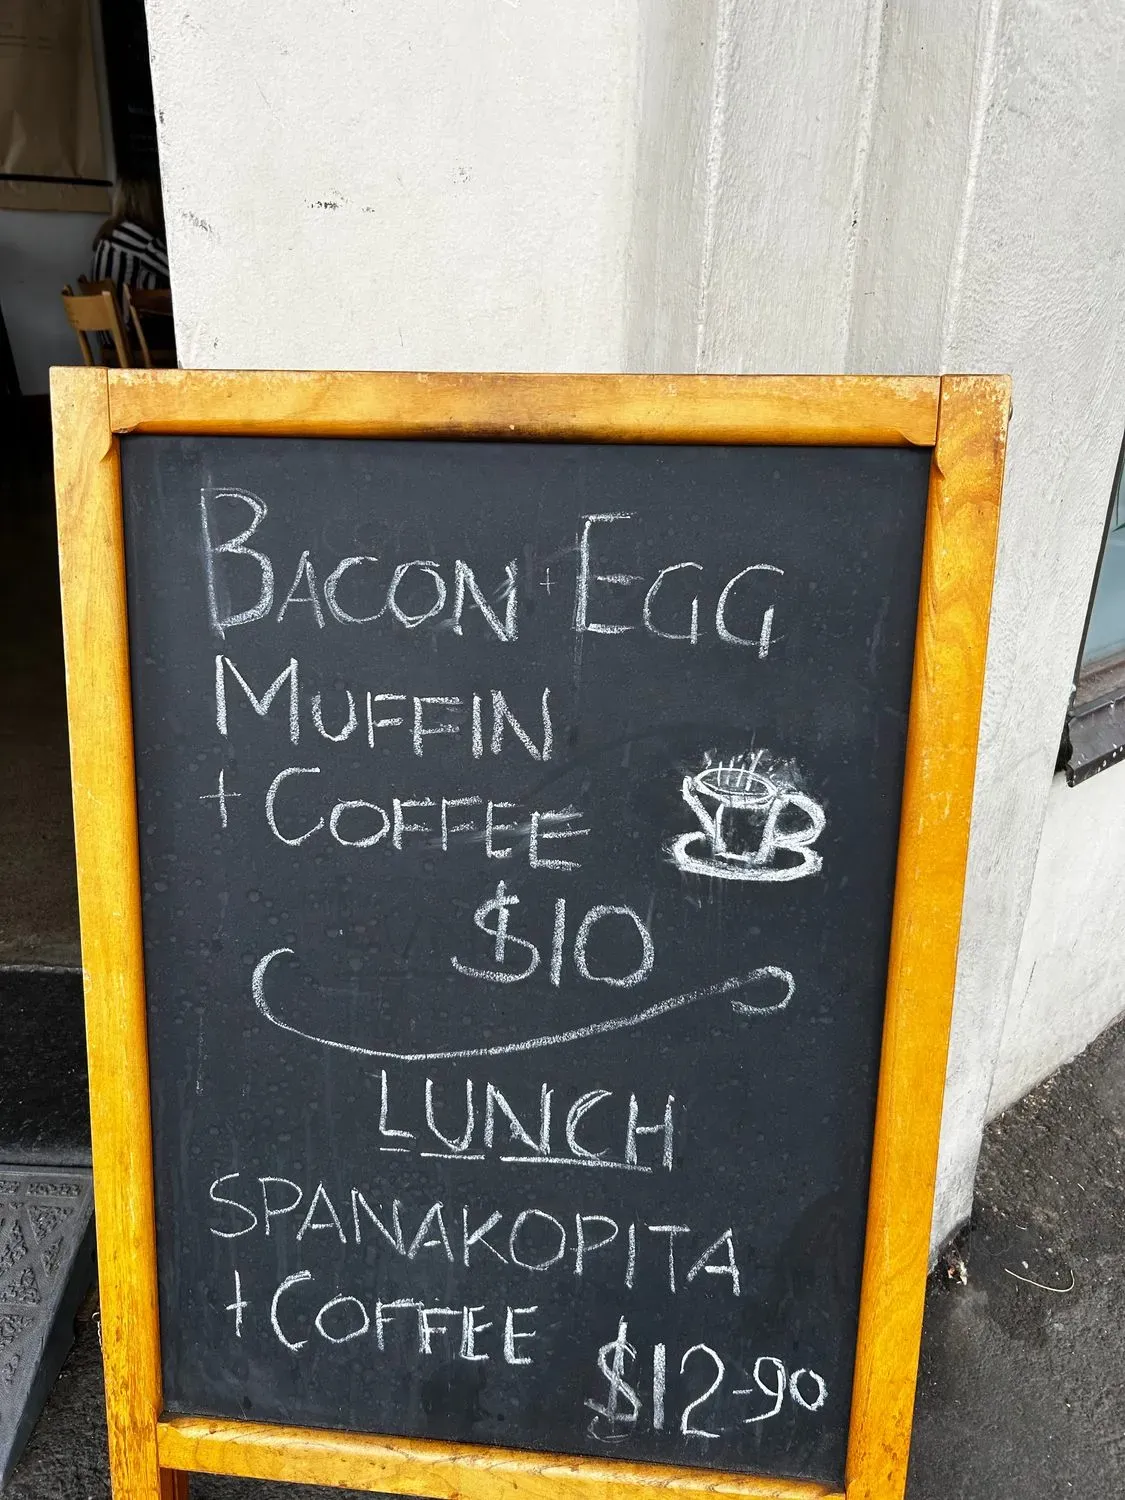 BACON + EGG
MUFFIN
+ COFFEE
$10
LUNCH
SPANAKOPITA
+ COFFEE
$12-90